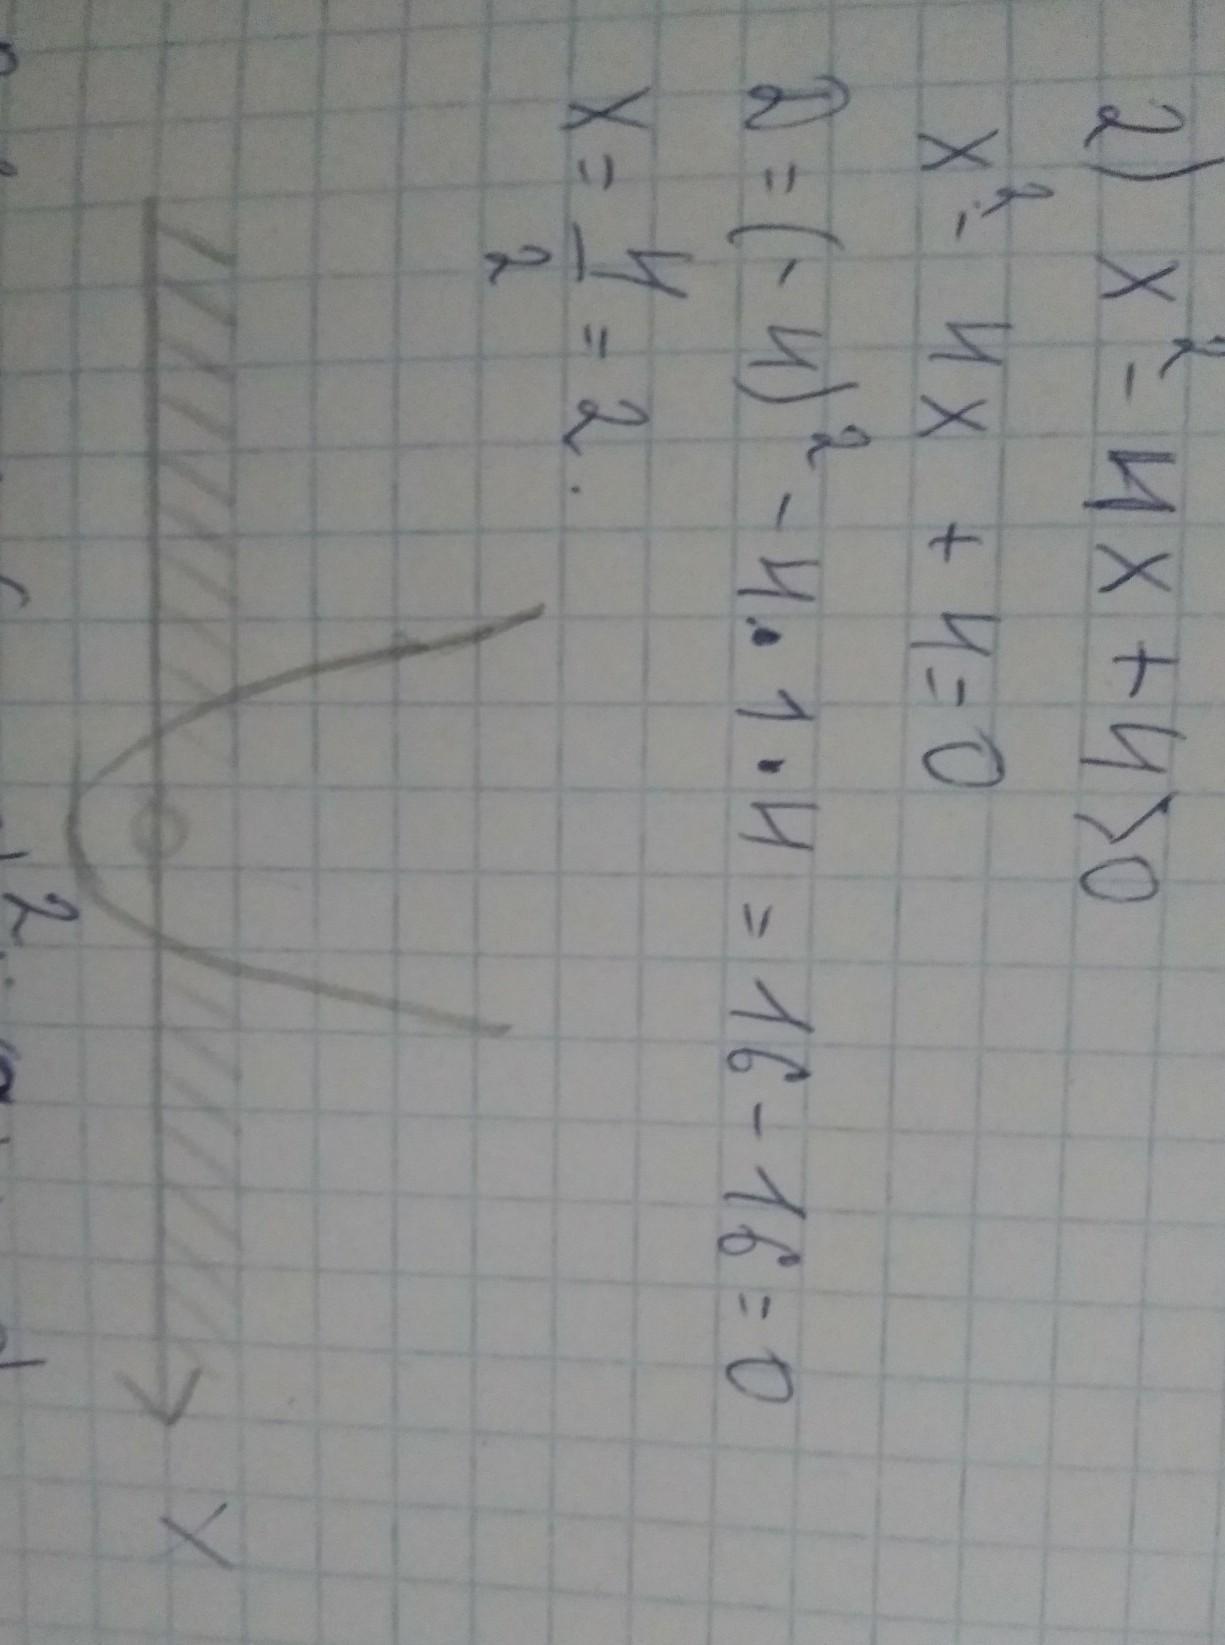 2) x² - 4x + 4 > 0
x² - 4x + 4 = 0
D = (-4)² - 4 · 1 · 4 = 16 - 16 = 0
x = 4/2 = 2.
x
2